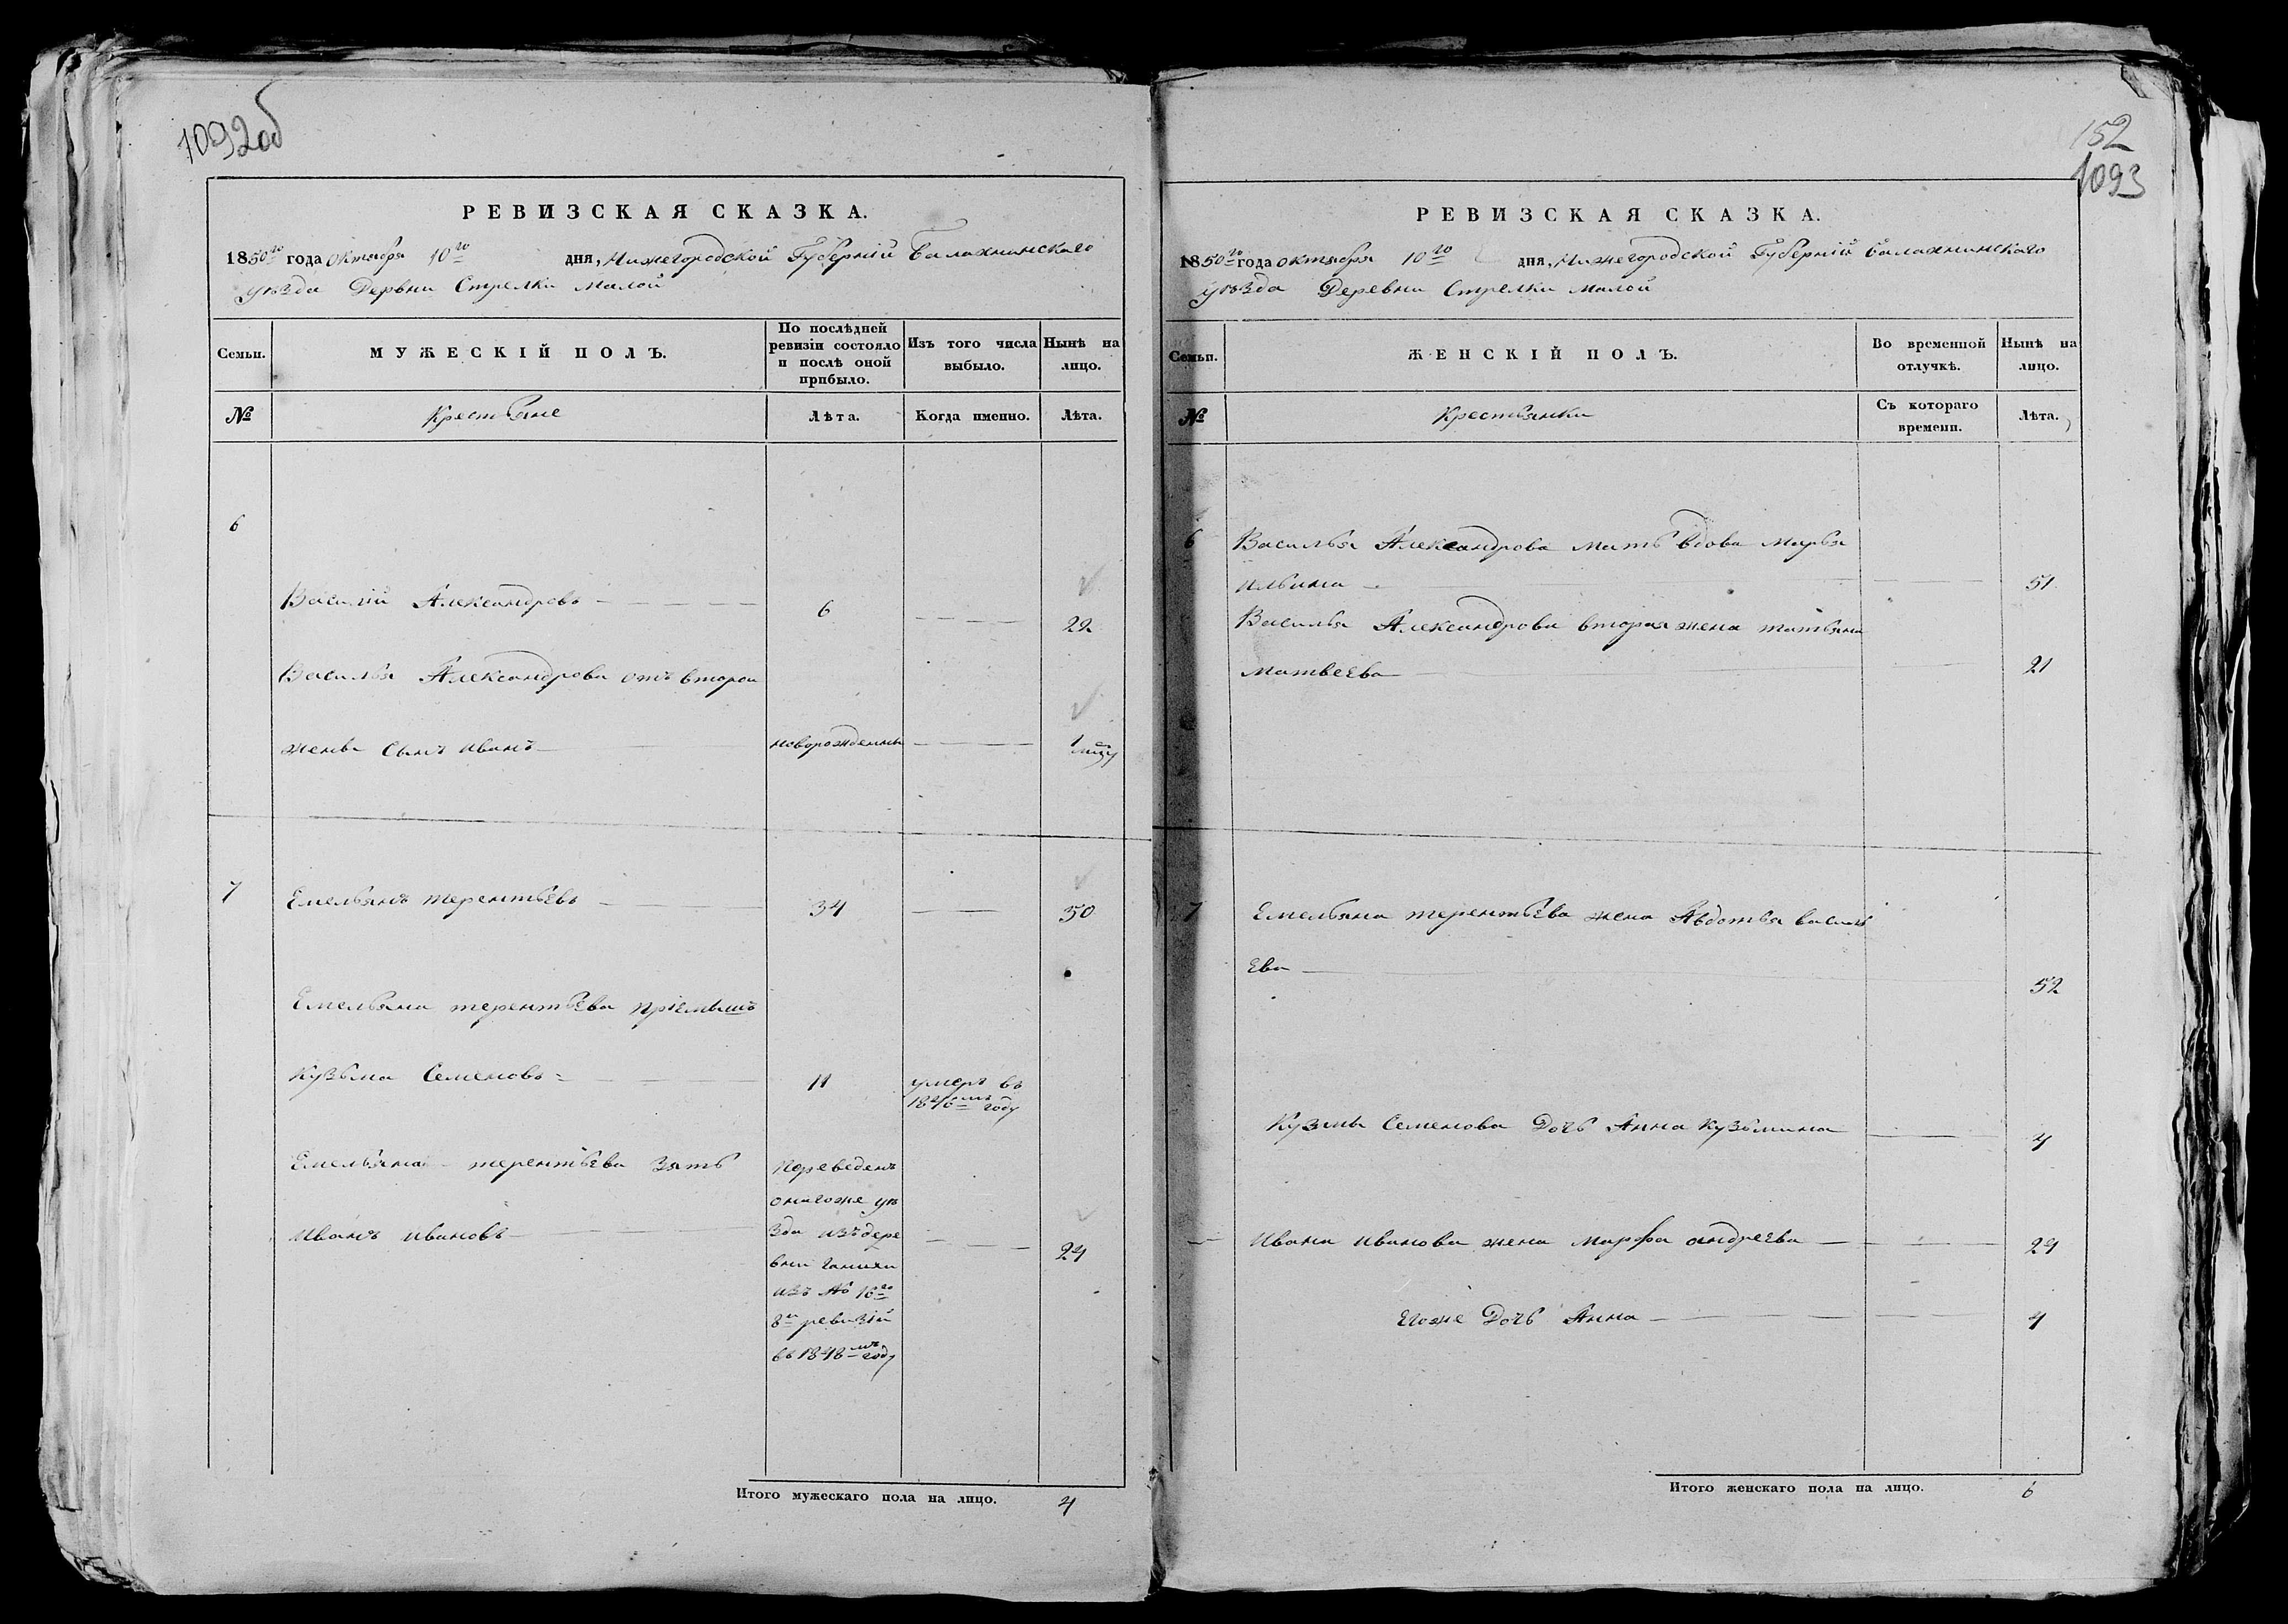 1092об
РЕВИЗСКАЯ СКАЗКА.
1850го года октября 10го дня, Нижегородской Губерній Балахнинскаго
уѣзда Дервни Стрелки Малой
Семьи.
МУЖЕСКІЙ ПОЛЪ.
По послѣдней ревизіи состояло и послѣ оной прибыло.
Изъ того числа выбыло.
Нынѣ на лицо.
№
Крестьяне
Лѣта.
Когда именно.
Лѣта.
6
Василій Александровъ 6 22
Василья Александрова отъ второй
жены сынъ иванъ новорожденны 1
7 Емельянъ терентьевъ 34 50
Емельяна терентьева пріемышъ
Кузьма Семеновъ 11 умеръ въ
1846мъ году
Емельяна терентьева зять Переведенъ
онагоже уѣ
Иванъ ивановъ зда изъ дере 24
вни
изъ № 16го
8й ревизій
въ 1848мъ году
Итого мужескаго пола на лицо. 4
152
1093
РЕВИЗСКАЯ СКАЗКА.
1850го года октября 10го дня, Нижегородской Губерній балахнинскаго
уѣзда Деревни Стрелки малой
Семьи.
ЖЕНСКІЙ ПОЛЪ.
Во временной отлучкѣ.
Нынѣ на лицо.
№
Крестьянки
Съ котораго времени.
Лѣта.
6 Василья Александрова мать вдова марья
ильина 51
Василья Александрова вторая жена татьяна
матвеева 21
7 Емельяна терентьева жена Авдотья василь
ева 52
Кузмы Семенова Дочь Анна Кузьмина 4
Ивана иванова жена марфа андреева 24
Егоже Дочь Анна 4
Итого женскаго пола на лицо. 6